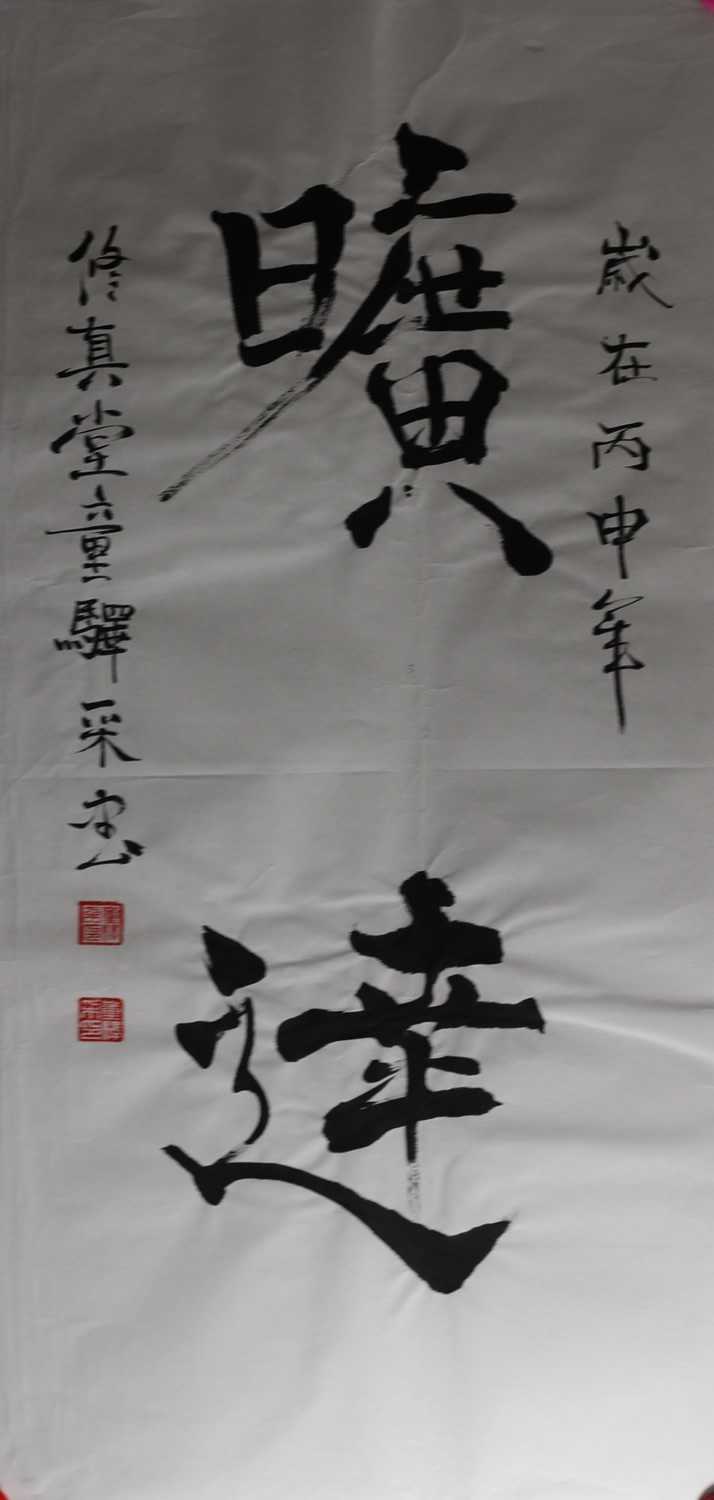 歲在丙申年
曠達
修真堂童驛采